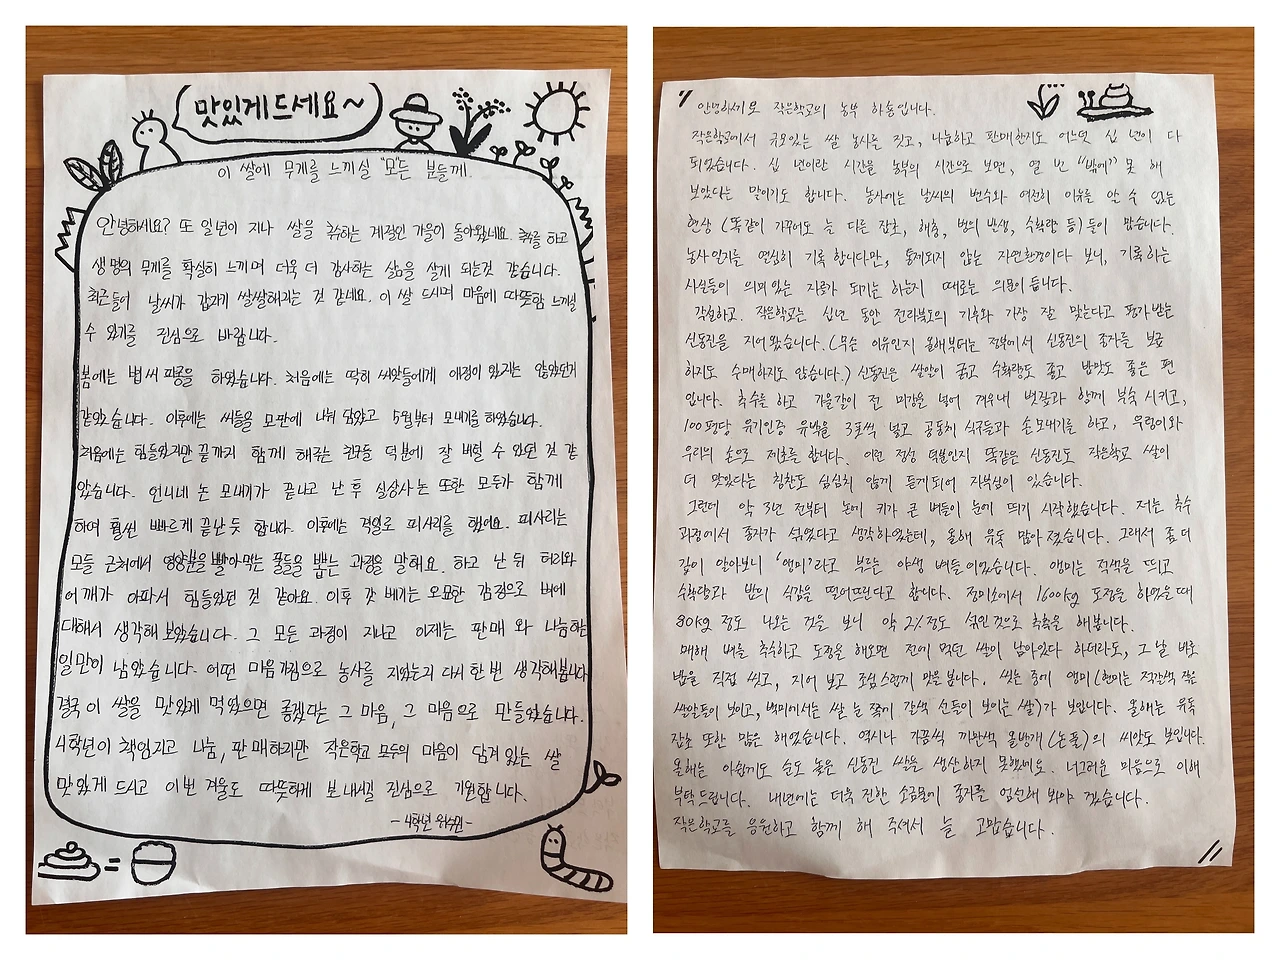 맛있게드세요~
이 쌀에 무게를 느끼실 "모"든 분들께.
안녕하세요? 또 일년이 지나 쌀을 추수하는 계절인 가을이 돌아왔네요. 추수를 하고
생명의 무게를 확실히 느끼며 더욱 더 감사하는 삶을 살게 되는것 같습니다.
최근들어 날씨가 갑자기 쌀쌀해지는 것 같네요. 이 쌀 드시며 마음에 따뜻함 느끼실
수 있기를 진심으로 바랍니다.
봄에는 볍씨 파종을 하였습니다. 처음에는 딱히 씨앗들에게 애정이 있지는 않았던거
같았습니다. 이후에는 씨들을 모판에 나눠 담았고 5월부터 모내기를 하였습니다.
처음에는 힘들었지만 끝까지 함께 해주는 친구들 덕분에 잘 버틸 수 있었던 것 같
았습니다. 언니네 논 모내기가 끝나고 난 후 실상사논 또한 모두가 함께
하여 훨씬 빠르게 끝난듯 합니다. 이후에는 격일로 피사리를 했어요. 피사리는
모들 근처에서 영양분을 빨아먹는 풀들을 뽑는 과정을 말해요. 하고 난 뒤 허리와
어깨가 아파서 힘들었던 것 같아요. 이후 갓 베기는 오묘한 감정으로 벼에
대해서 생각해 보았습니다. 그 모든 과정이 지나고 이제는 판매 와 나눔하는
일만이 남았습니다. 어떤 마음가짐으로 농사를 지었는지 다시 한 번 생각해봅니다
결국 이 쌀을 맛있게 먹었으면 좋겠다는 그 마음, 그 마음으로 만들었습니다.
4학년이 책임지고 나눔, 판매하지만 작은학교 모두의 마음이 담겨 있는 쌀
맛있게 드시고 이번 겨울도 따뜻하게 보내시길 진심으로 기원합니다.
-4학년 -
=
" 안녕하세요 작은학교의 농부 하용입니다.
작은학교에서 규모있는 쌀 농사를 짓고, 나눔하고 판매한지도 어느덧 십 년이 다
되었습니다. 십 년이란 시간을 농부의 시간으로 보면, 열 번 "밖에" 못 해
보았다는 말이기도 합니다. 농사에는 날씨의 변수와 여전히 이유를 알 수 없는
현상 (똑같이 가꾸어도 논 마다 다른 잡초, 해충, 병의 발생, 수확량 등)들이 많습니다.
농사일지를 열심히 기록합니다만, 통제되지 않는 자연환경이다 보니, 기록하는
사실들이 의미있는 자료가 되기는 하는지 때로는 의문이 듭니다.
각설하고. 작은학교는 십년 동안 전라북도의 기후와 가장 잘 맞는다고 평가받는
신동진을 지어왔습니다.(무슨 이유인지 올해부터는 정부에서 신동진의 종자를 보급
하지도 수매하지도 않습니다.) 신동진은 쌀알이 굵고 수확량도 좋고 밥맛도 좋은 편
입니다. 추수를 하고 가을갈이 전 미강을 넣어 겨우내 볏짚과 함께 부숙 시키고,
100평당 유기인증 유박을 3포씩 넣고 공동체 식구들과 손모내기를 하고, 우렁이와
우리의 손으로 제초를 합니다. 이런 정성 덕분인지 똑같은 신동진도 작은학교 쌀이
더 맛있다는 칭찬도 심심치 않게 듣게되어 자부심이 있습니다.
그런데 약 3년 전부터 논에 키가 큰 벼들이 눈에 띄기 시작했습니다. 저는 추수
과정에서 종자가 섞였다고 생각하였는데, 올해 유독 많아 졌습니다. 그래서 좀 더
깊이 알아보니 '앵미'라고 부르는 야생 벼들이었습니다. 앵미는 적색을 띄고
수확량과 밥의 식감을 떨어뜨린다고 합니다. 정미소에서 1600kg 도정을 하였을때
80kg 정도 나오는 것을 보니 약 2%정도 섞인 것으로 추측을 해봅니다.
매해 벼를 추수하고 도정을 해오면 전에 먹던 쌀이 남아있다 하더라도, 그 날 바로
밥을 직접 씻고, 지어 보고 조심스럽게 맛을 봅니다. 씻는 중에 앵미(현미는 적갈색 작은
쌀알들이 보이고, 백미에서는 쌀 눈 쪽에 갈색 선들이 보이는 쌀)가 보입니다. 올해는 유독
잡초 또한 많은 해였습니다. 역시나 가끔씩 까만색 올방개(논풀)의 씨앗도 보입니다.
올해는 아쉽게도 순도 높은 신동진 쌀을 생산하지 못했네요. 너그러운 마음으로 이해
부탁드립니다. 내년에는 더욱 진한 소금물에 종자를 엄선해 봐야 겠습니다.
작은학교를 응원하고 함께 해 주셔서 늘 고맙습니다. "